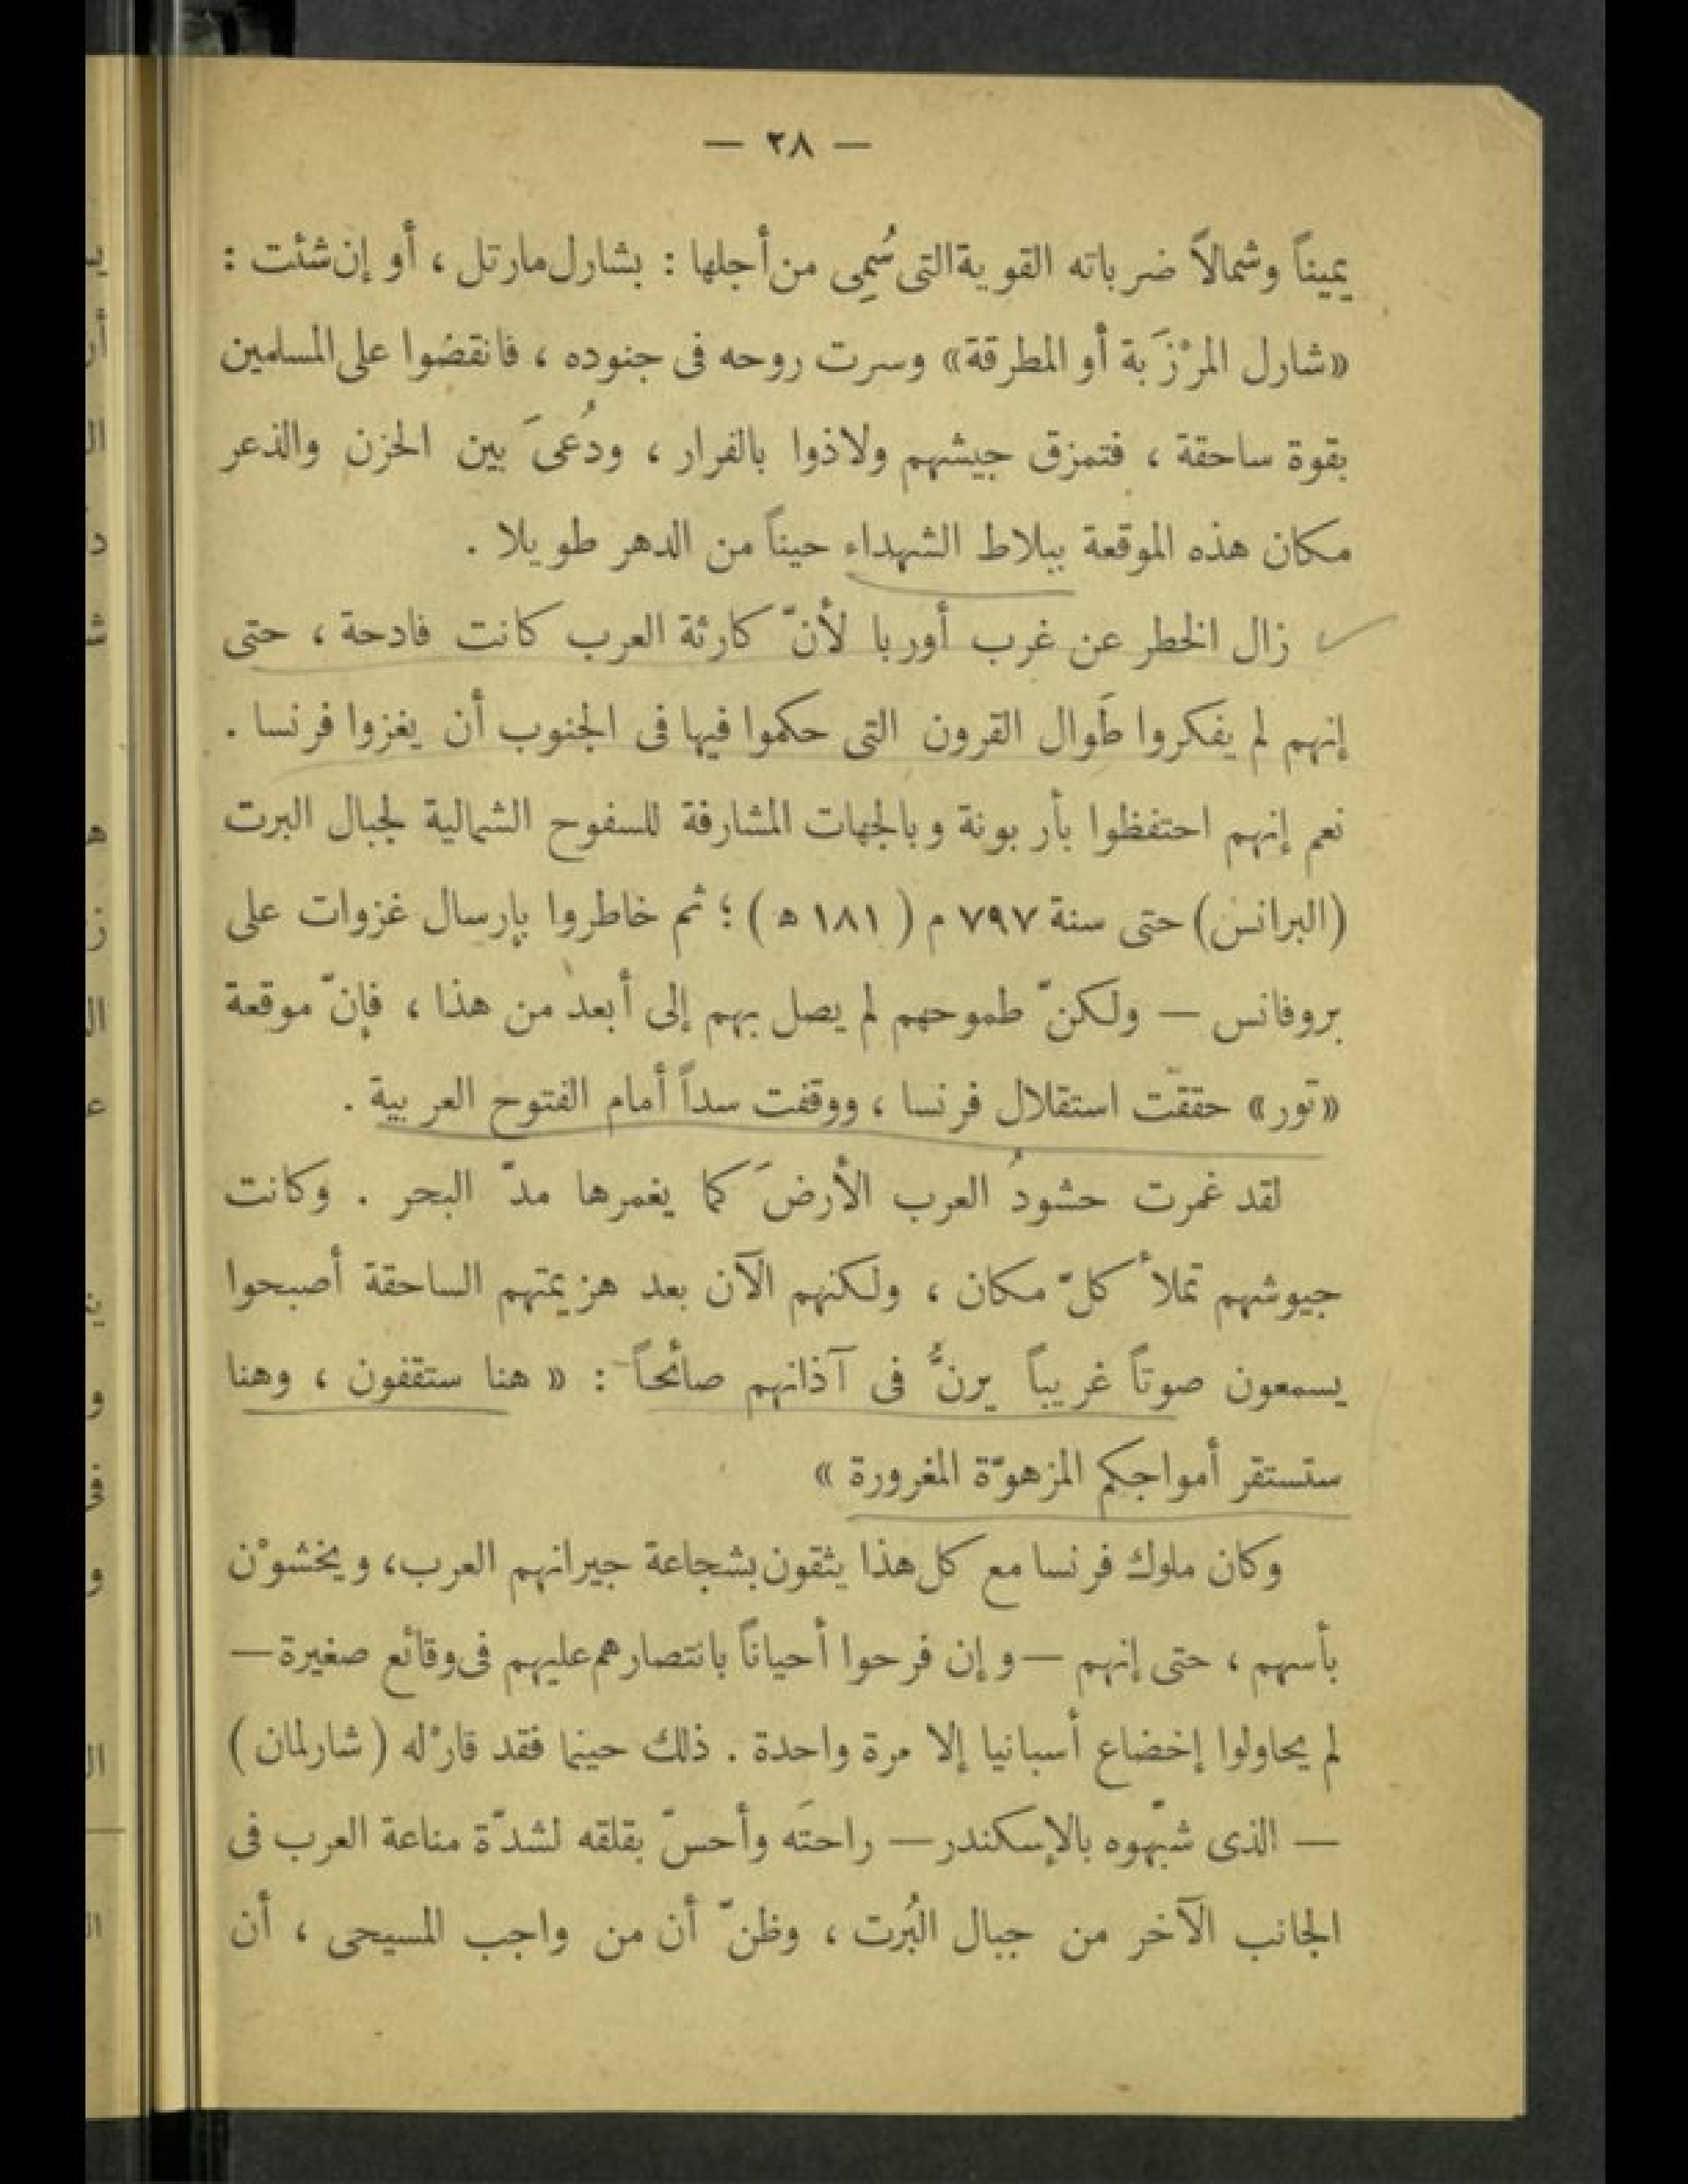 — ٢٨ —
يميناً وشمالاً ضرباته القوية التى سُمِى من أجلها : بشارل مارتل ، أو إن شئت :
«شارل المرْزَبة أو المطرقة» وسرت روحه فى جنوده ، فانقضوا على المسلمين
بقوة ساحقة ، فتمزق جيشهم ولاذوا بالفرار ، ودُعىَ بين الحزن والذعر
مكان هذه الموقعة ببلاط الشهداء حيناً من الدهر طويلا .
زال الخطر عن غرب أوربا لأنّ كارثة العرب كانت فادحة ، حتى
إنهم لم يفكروا طَوال القرون التى حكموا فيها فى الجنوب أن يغزوا فرنسا .
نعم إنهم احتفظوا بأربونة وبالجهات المشارفة للسفوح الشمالية لجبال البرت
(البرانس) حتى سنة ٧٩٧ م ( ١٨١ ه ) ؛ ثم خاطروا بإرسال غزوات على
بروفانس — ولكنّ طموحهم لم يصل بهم إلى أبعد من هذا ، فإنّ موقعة
«تور» حققت استقلال فرنسا ، ووقفت سداً أمام الفتوح العربية .
لقد غمرت حشودُ العرب الأرضَ كما يغمرها مدّ البحر . وكانت
جيوشهم تملأ كلّ مكان ، ولكنهم الآن بعد هزيمتهم الساحقة أصبحوا
يسمعون صوتاً غريباً يرنُّ فى آذانهم صائحاً : « هنا ستقفون ، وهنا
ستستقر أمواجكم المزهوّة المغرورة »
وكان ملوك فرنسا مع كل هذا يثقون بشجاعة جيرانهم العرب ، ويخشوْن
بأسهم ، حتى إنهم — وإن فرحوا أحياناً بانتصارهم عليهم فى وقائع صغيرة —
لم يحاولوا إخضاع أسبانيا إلا مرة واحدة . ذلك حينما فقد قارْله (شارلمان)
— الذى شبّهوه بالإسكندر — راحتَه وأحسّ بقلقه لشدّة مناعة العرب فى
الجانب الآخر من جبال البُرت ، وظنّ أن من واجب المسيحى ، أن